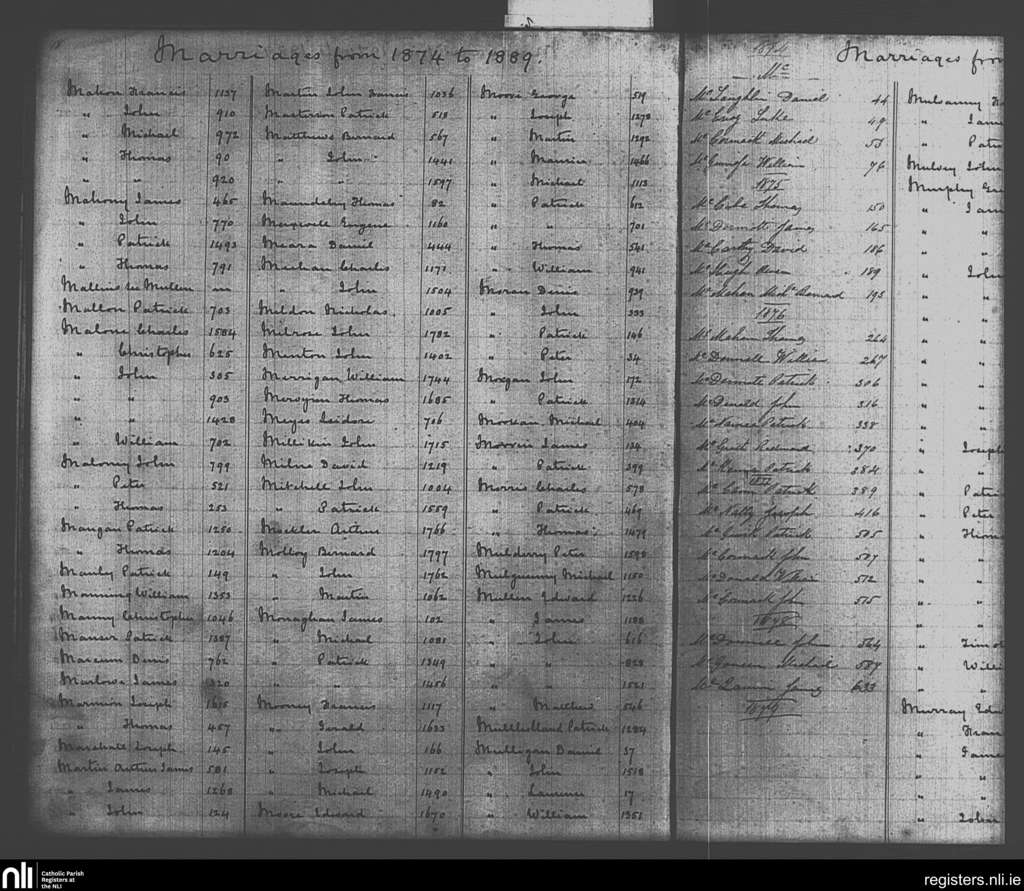 Marriages from 1874 to 1889.
Mahon Francis 1137
" John 910
" Michael 972
" Thomas 90
" " 920
Mahony James 465
" John 770
" Patrick 1493
" Thomas 791
Mallins see Mullin
Mallon Patrick 703
Malone Charles 1584
" Christopher 625
" John 305
" " 903
" " 1428
" William 702
Malony John 799
" Peter 521
" Thomas 253
Mangan Patrick 1250
" Thomas 1204
Manley Patrick 149
Manning William 1353
Manny Christopher 1046
Manser Patrick 1387
Marcum Denis 762
Marlow James
Marmion Joseph
" Thomas 457
Marshall Joseph 145
Martin Arthur James 581
" James 1268
" John 124
Martin John Francis 1036
Masterson Patrick 518
Matthews Bernard 567
" John 1441
" " 1597
Maundsley Thomas 82
Eugene 1160
Meara Daniel 444
Meehan Charles 1171
" John 1504
Meldon Nicholas 1005
Melrose John 1782
Menton John 1402
Merrigan William 1744
Mervyn Thomas 1685
Meyes Isidore 706
Millikin John 1715
Milne David 1219
Mitchell John 1004
" Patrick 1559
Arthur 1766
Molloy Bernard 1797
" John 1762
" Martin 1062
Monaghan James 102
" Michael 1081
" Patrick 1349
" " 1456
Mooney Francis 1117
" Gerald 1623
" John 166
" Joseph 1152
" Michael 1490
Moore Edward 1670
Moore George 519
" Joseph 1272
" Martin 1292
" Maurice 1466
" Michael 1113
" Patrick 612
" " 701
" Thomas 541
" William 941
Moran Denis 939
" John 333
" Patrick 146
" Peter 34
Morgan John 172
" Patrick 1314
Michael 404
Morrin James 134
" Patrick 399
Morris Charles 578
" Patrick 469
" Thomas 1479
Mulderry Peter 1590
Michael 1150
Mullen Edward 1226
" James 1188
" John 616
" " 828
" " 1521
" Matthew 546
Mullholland Patrick 1284
Mulligan Daniel 37
" John 1518
" Laurence 17
" William 1351
1874
Mc
McLaughlin Daniel 44
Luke 49
McCormack Michael 53
William 76
1875
McCabe Thomas 150
McDermott James 165
McCarthy David 186
McHugh Owen 189
McMahon Bernard 195
1876
McMahon Thomas 264
McDonnell William 267
McDermott Patrick 306
McDonald John 316
McNamee Patrick 338
370
Patrick 384
McCann Patrick 389
McNally Joseph 416
Patrick 505
McCormack John 507
McDonald William 512
McCormack John 515
McDonnell John 564
Michael 587
James 633
1879
Marriages from
Mulvanny
" Jame
" Patri
Mulvey John
Murphy
" Jam
" "
" "
" John
" "
" "
" "
" Joseph
" "
" Patri
" Peter
" Thom
" "
" "
" Timot
" Willi
" "
Murray Edw
" Fran
" Jame
" "
" "
" John
nli
Catholic Parish
Registers at
the NLI
registers.nli.ie